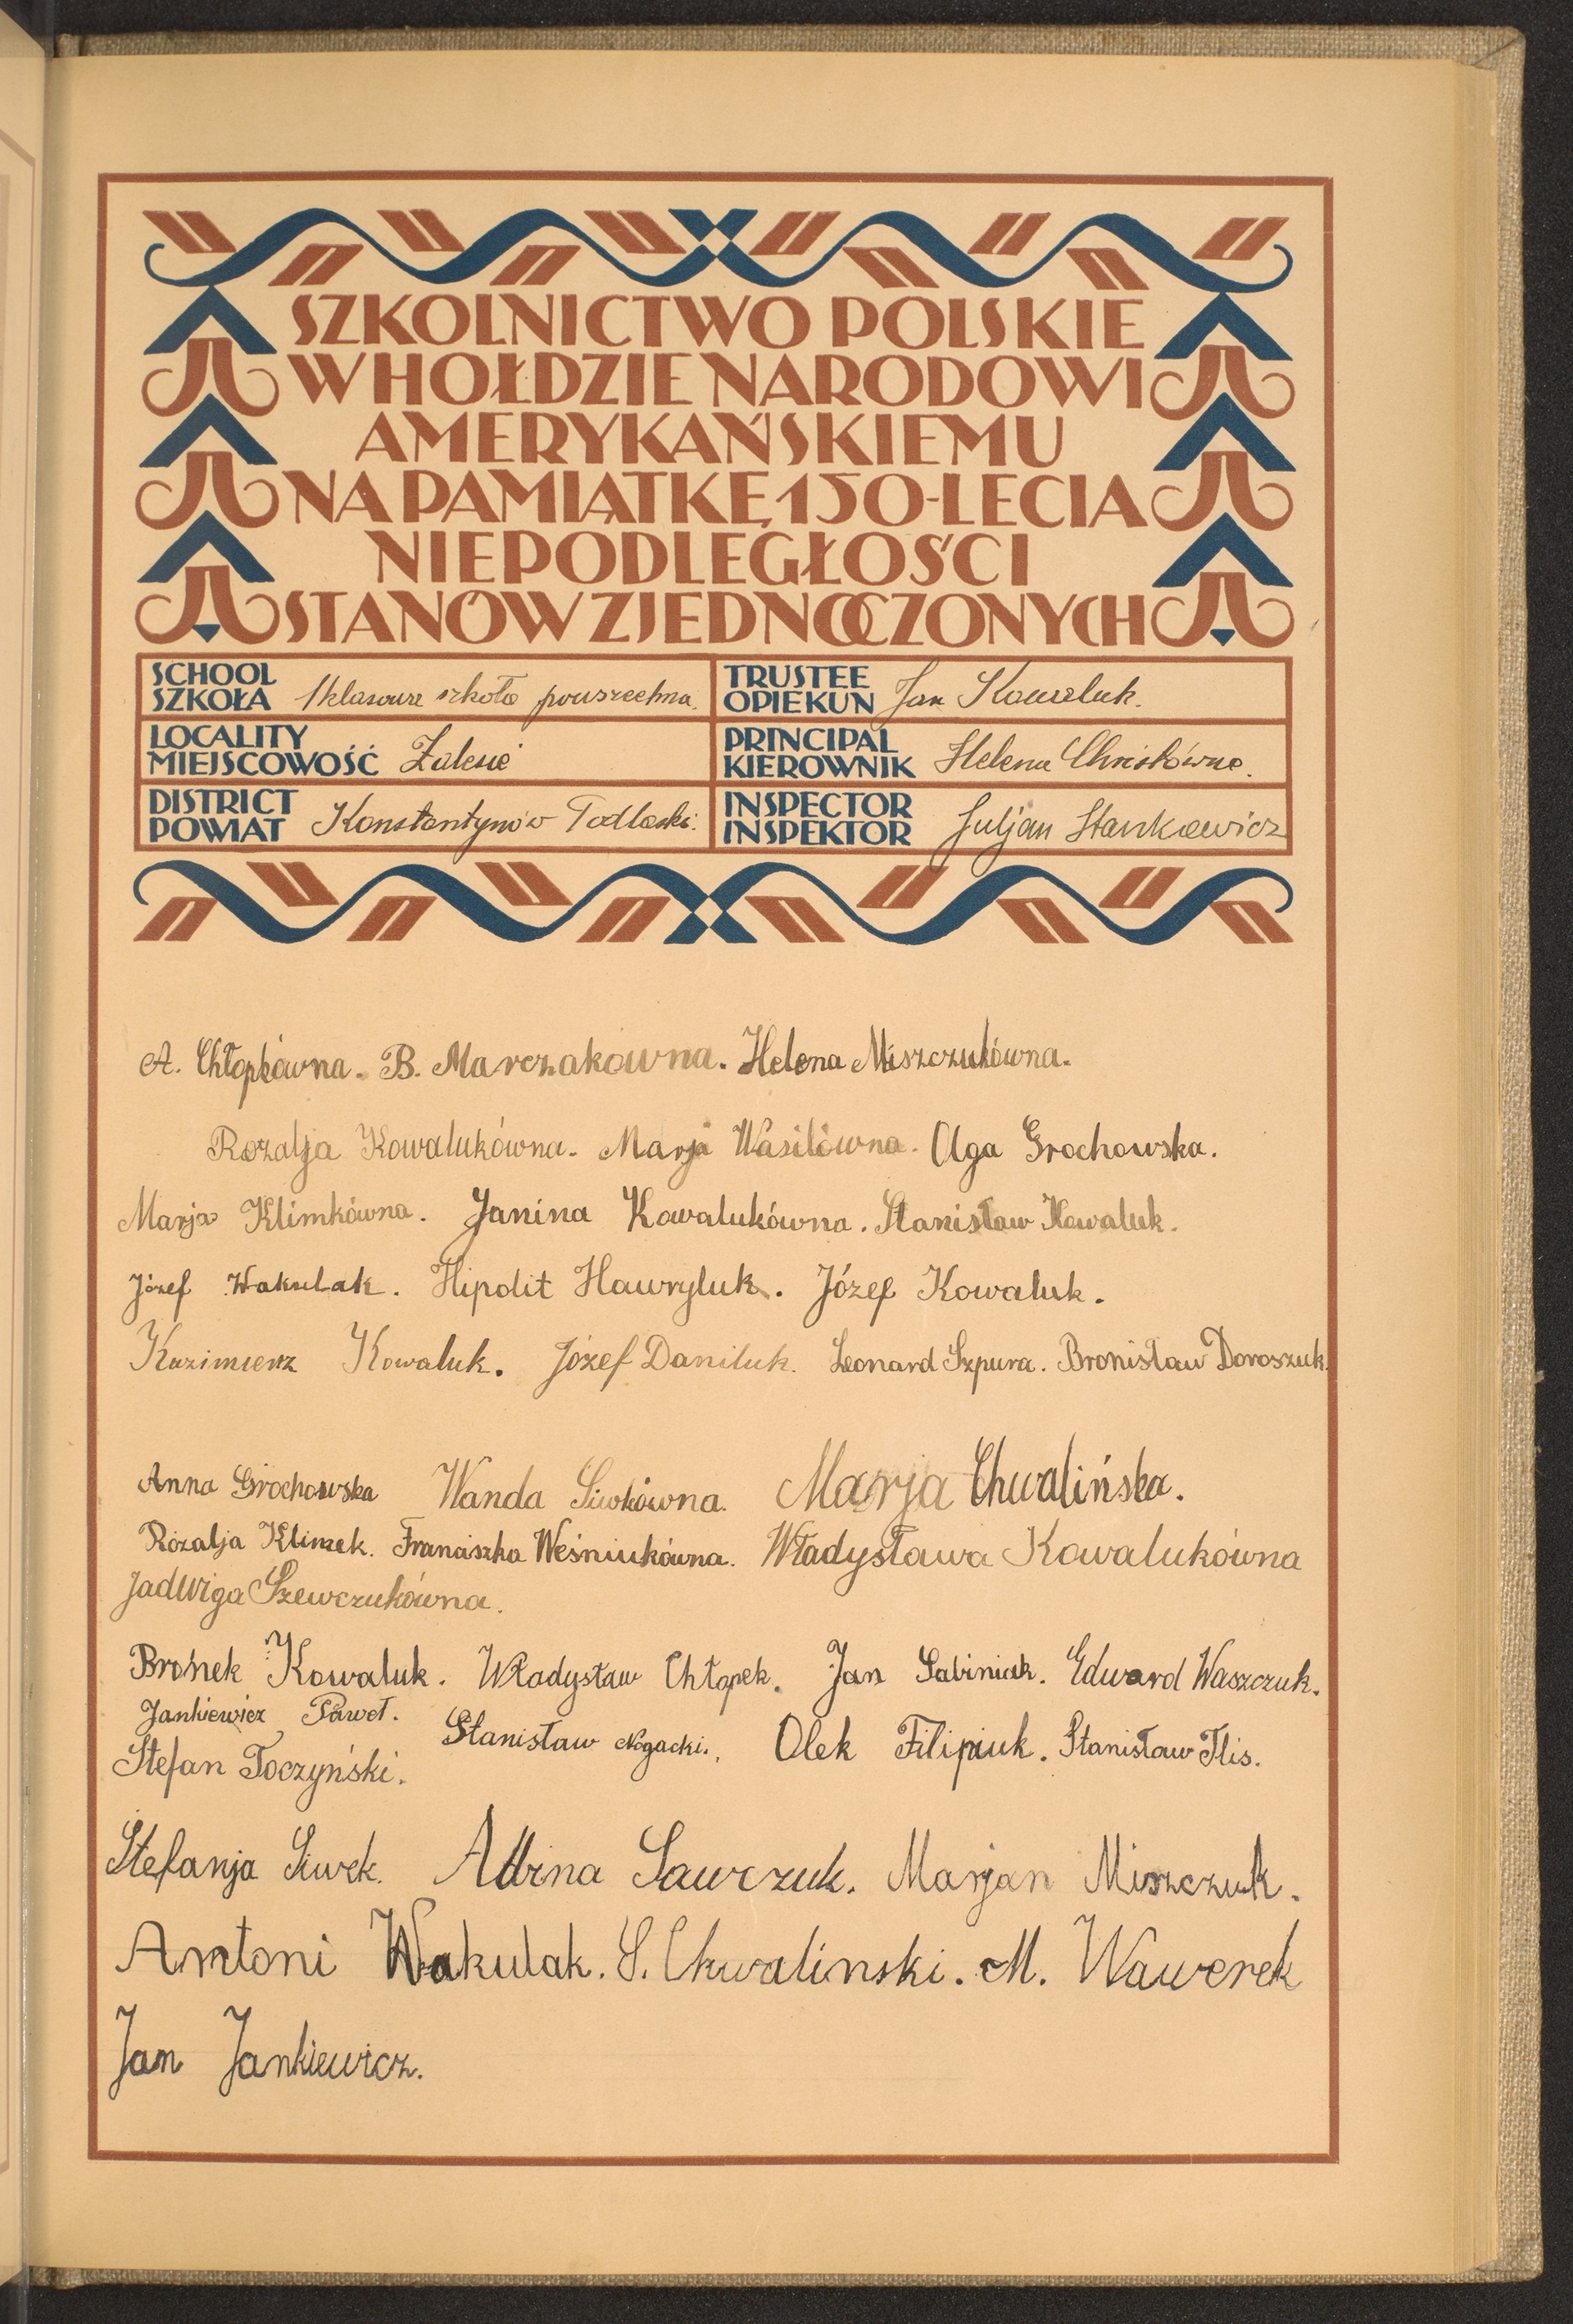 SZKOLNICTWO POLSKIE
W HOŁDZIE NARODOWI
AMERYKAŃSKIEMU
NA PAMIĄTKĘ 150-LECIA
NIEPODLEGŁOŚCI
STANÓW ZJEDNOCZONYCH
SCHOOL
SZKOŁA 1 klasowa szkoła powszechna.
TRUSTEE
OPIEKUN Jan Kowaluk.
LOCALITY
MIEJSCOWOŚĆ Zalesie
PRINCIPAL
KIEROWNIK Helena
DISTRICT
POWIAT Konstantynów Podlaski.
INSPECTOR
INSPEKTOR Juljan Stankiewicz
A. Chłopkówna. B. Marczakowna. Helena Miszczukówna.
Rozalja Kowalukówna. Marja Wasilówna. Olga Grochowska.
Marja Klimkówna. Janina Kowalukówna. Stanisław Kowaluk.
Józef Wakulak. Hipolit Hawryluk. Józef Kowaluk.
Kazimierz Kowaluk. Józef Daniluk. Leonard Szpura. Bronisław Doroszuk.
Anna Grochowska Wanda Siwkówna. Marja Chwalińska.
Rozalja Klimek. Franciszka Weśniukówna. Władysława Kowalukówna
Jadwiga Szewczukówna.
Bronek Kowaluk. Władysław Chłopek. Jan Sabiniak. Edward Waszczuk.
Jankiewicz Paweł. Stanisław Nogacki. Olek Filipiuk. Stanisław Flis.
Stefan Toczyński.
Stefanja Siwek. Albina Sawczuk. Marjan Miszczuk.
Antoni Wakulak. S. Chwalinski. M. Wawerek
Jan Jankiewicz.